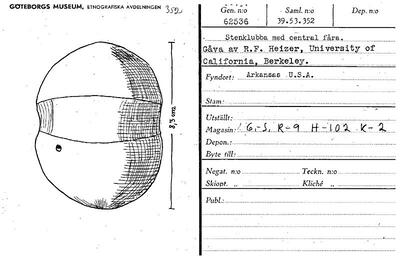 GÖTEBORGS MUSEUM, ETNOGRAFISKA AVDELNINGEN
3,3 cm.
Gen. n:o Dep. n:o Saml. n:o
62536 39.53.352
Stenklubba med central fåra.
Gåva av R.F. Heizer, University of
California, Berkeley.
Fyndort: Arkansas U.S.A.
Stam:
Utställt:
Magasin: G.-S. R-9 H-102 K-2
Depon.:
Byte till:
Negat. n:o Teckn. n:o
Skiopt. „ Kliché „
Publ.: